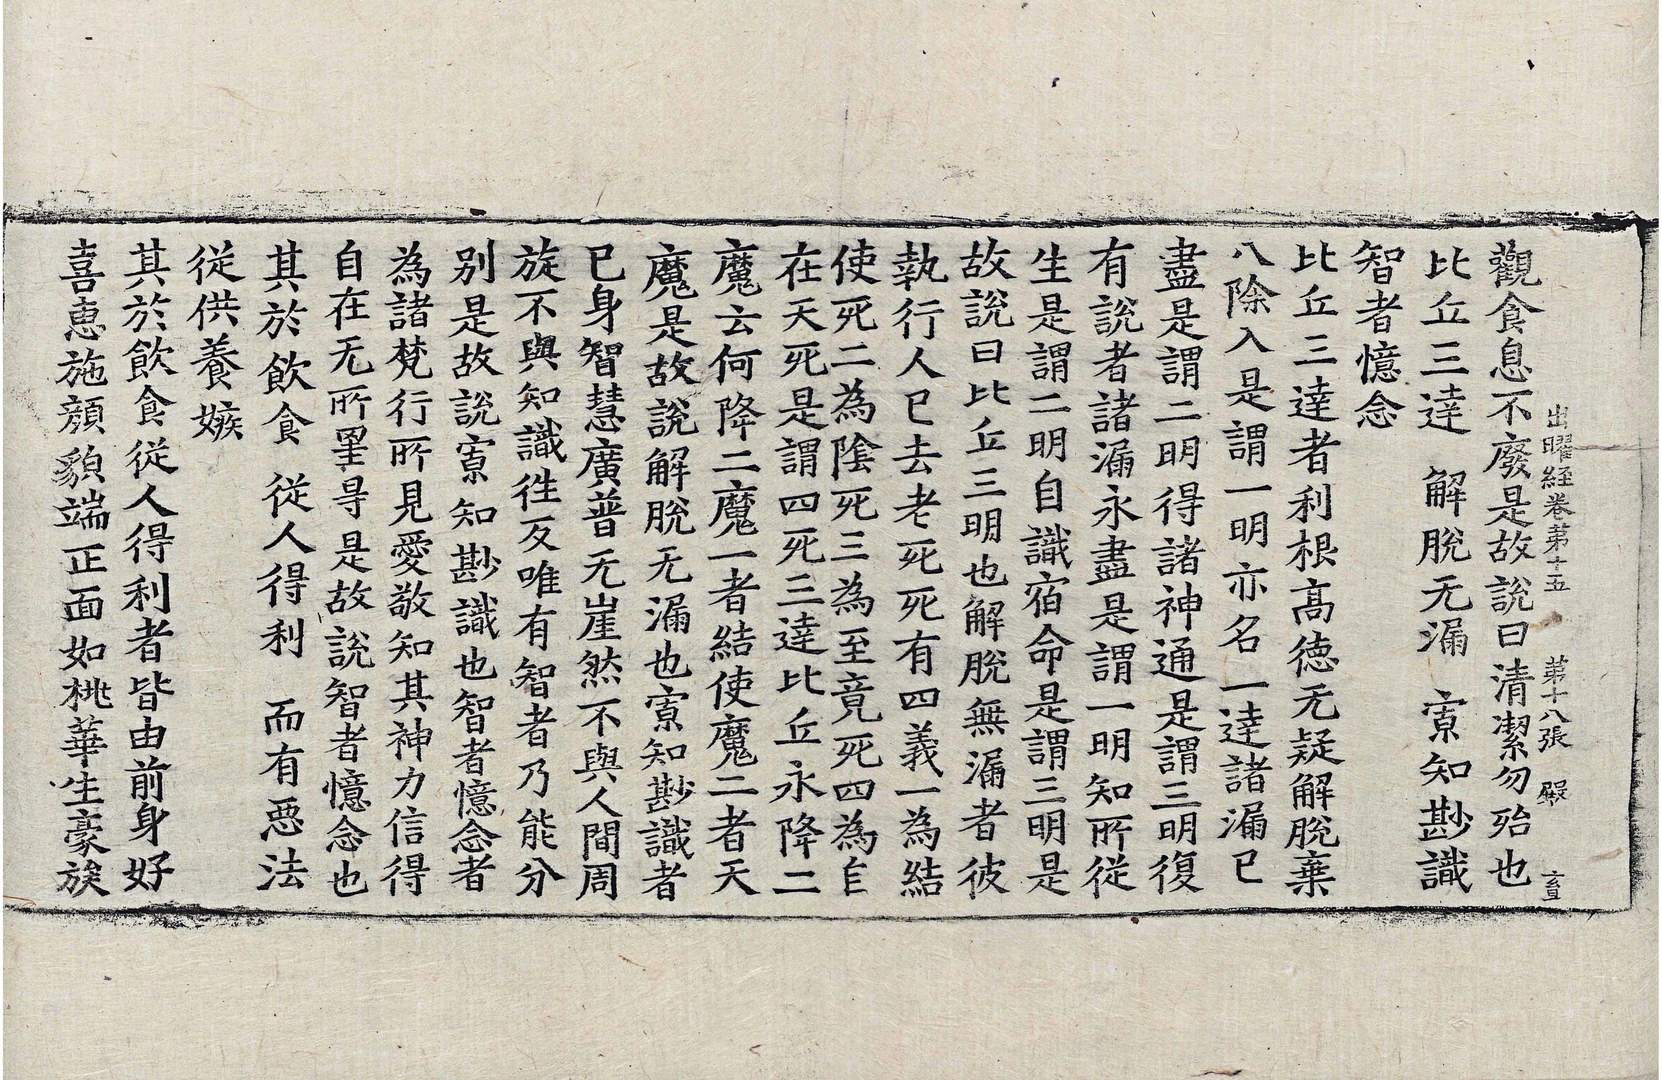 出曜経卷苐十五 苐十八張 殹 玄直
觀食息不廢是故說曰清潔勿殆也
比丘三達 解脫无漏 寡知尠識
智者憶念
比丘三達者利根高徳无疑解脫棄
八除入是謂一明亦名一達諸漏已
盡是謂二明得諸神通是謂三明復
有說者諸漏永盡是謂一明知所從
生是謂二明自識宿命是謂三明是
故說曰比丘三明也解脫無漏者彼
執行人已去老死死有四義一為結
使死二為陰死三為至竟死四為自
在天死是謂四死三達比丘永降二
魔云何降二魔一者結使魔二者天
魔是故說解脫无漏也寡知尠識者
已身智慧廣普无崖然不與人間周
旋不與知識徃反唯有智者乃能分
別是故說寡知尠識也智者憶念者
為諸梵行所見愛敬知其神力信得
自在无所罣㝵是故說智者憶念也
其於飲食 従人得利 而有惡法
従供養嫉
其於飲食従人得利者皆由前身好
喜惠施顏貌端正面如桃華生豪族